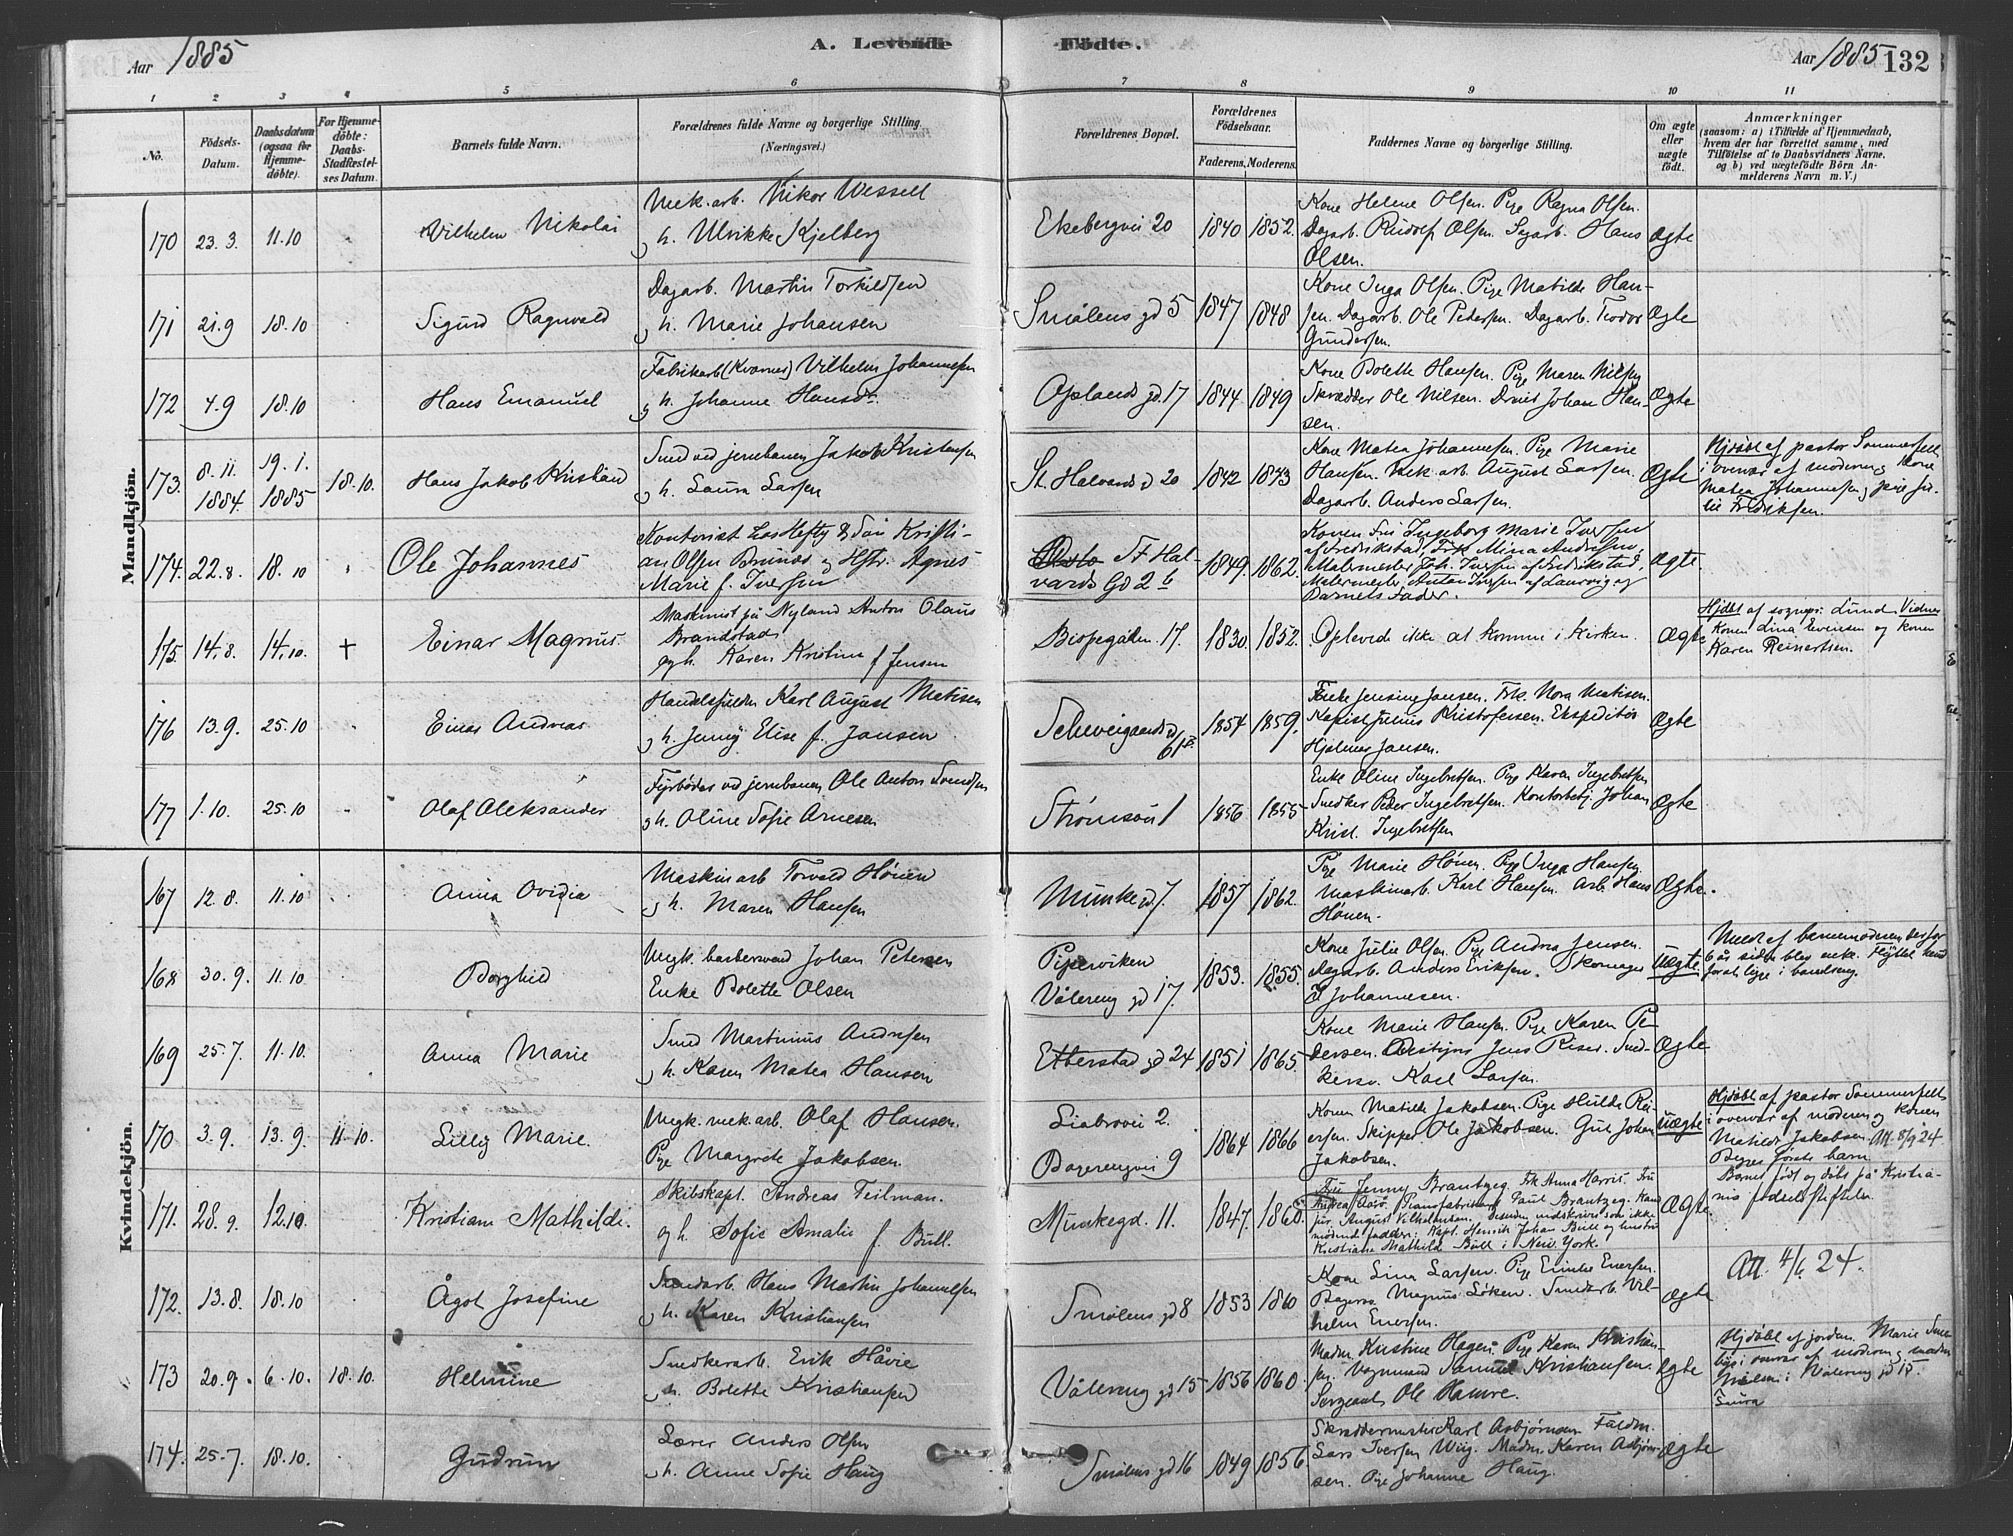 Aar 1885
A. Levende Födte.
Aar 1885 132
1 2 3 4 5 6 7 8 9 10 11
No.
Födsels-Datum.
Daabsdatum (ogsaa for Hjemmedöbte).
For Hjemmedöbte: Daabs-Stadfæstelses Datum.
Barnets fulde Navn.
Forældrenes fulde Navne og borgerlige Stilling. (Næringsvei.)
Forældrenes Bopæl.
Forældrenes Födselsaar.
Faderens. Moderens.
Faddernes Navne og borgerlige Stilling.
Om ægte eller uægte födt.
Anmærkninger
(saasom: a) i Tilfælde af Hjemmedaab,
hvem der har forrettet samme, med
Tilföielse af to Daabsvidners Navne,
og b) ved uægtefödte Börn Anmelderens Navn m. V.)
Mandkjön.
170 23.3. 11.10 Vilhelm Nikolai
Mek. arb. Nikor Wessell
og h. Ulrikke Kjelberg
Ekebergvei 20 1840 1852.
Kone Helene Olsen. Pige Ragna Olsen.
Dagarb. Rudolf Olsen. Sagarb. Hans
Olsen.
Ægte
171 21.9 18.10 Sigurd Ragnvald
Dagarb. Martin Torkildsen
og h. Marie Johansen
Smålens gd 5 1847 1848
Kone Inga Olsen. Pige Matilde Han-
sen. Dagarb. Ole Pedersen. Dagarb. Teodor
Gundersen.
Ægte
172 4.9 18.10 Hans Emanuel
Fabrikarb (Kværner) Vilhelm Johannessen
og h. Johanne Hansdr.
Oplands gd. 17 1844 1849
Kone Bolette Hansen. Pige Maren Nilsen
Skrædder Ole Nilsen. Johan Han-
sen.
Ægte
173. 8.11. 1884. 19.1. 1885 18.10. Hans Jakob Kristian
Smed ved jernbanen Jakob Kristensen
og h. Laura Larsen
St. Halvards gd 20 1842 1843
Kone Matea Johannesen. Pige Marie
Hansen. Mek. arb. August Larsen.
Dagarb. Anders Larsen.
Ægte
Hjdøbt af pastor Sommerfelt
i overvær af moderen og kone
Matea Johannesen og pige Ju-
lie Fredriksen.
174. 22.8. 18.10 Ole Johannes
Kontorist hos Hefty & Søn Kristi-
an Olsen Brunæs og Hstr. Agnes
Marie f. Iversen
St Hal-
vards Gd 2b 1849. 1862.
Konen Fru Ingeborg Marie Iversen
af Fredrikstad, Frk Mina Andersen,
Malermester Joh. Iversen af Fredrikstad,
Malermester Anton Iversen af Laurvig og
Barnets Fader.
Ægte
175. 14.8. 14.10. + Einar Magnus.
Maskinist på Nyland Anton Olaus
Brandstad
og h. Karen Kristine f Jensen
Bispegaden. 17. 1830. 1852.
Oplevede ikke at komme i Kirken.
Ægte
Hjdøbt af sognepr. Lund. Vidner
konen Lina Evensen og konen
Karen Reinertsen.
176 13.9. 25.10 Einar Andreas
Handelsfuldm Karl August Matisen
og h. Jenny Elise f. Jansen
Schweigaards gd 61 1854 1859.
Enke Jensine Jansen. Frk Nora Matisen.
Kopist Julius Kristofersen. Ekspeditør
Hjalmar Jansen.
Ægte
177 1.10. 25.10 Olaf Aleksander
Fyrbøder ved jernbanen Ole Anton Svendsen
og h. Oline Sofie Arnesen
Strømsvei 1 1856 1855
Enke Oline Ingebretsen. Pige Karen Ingebretsen
Snedker Peder Ingebretsen. Kontorbetj. Johan
Krist. Ingebretsen
Ægte
Kvindekjön.
167 12.8. 11.10 Anna Ovidia
Maskinarb Torvald Hönen
og h. Maren Hansen
Munkegd 7. 1857 1862.
Pige Marie Hönen. Pige Inga Hansen
Maskinarb. Karl Hansen. Arb. Hans
Hönen.
Ægte.
168 30.9. 11.10. Borghild
Ungk. barbersvend Johan Petersen
Enke Bolette Olsen
Piperviken
Vålereng gd 17. 1853. 1855.
Kone Julie Olsen. Pige Andrea Jensen.
Dagarb. Anders Eriksen. Skomager
H Johannesen.
Uægte
Meldt af barnemoderen der for
6 år siden blev enke.
169 25.7. 11.10. Anna Marie
Smed Martinius Andresen
og h. Karen Matea Hansen
Etterstad gd 24 1851 1865.
Kone Marie Hansen. Pige Karen Pe-
dersen. Jens Riser. Sned-
kersv. Karl Larsen.
Ægte
170 3.9. 13.9. 11.10. Lilly Marie.
Ungk. mek. arb. Olaf Hansen.
Pige Margrete Jakobsen.
Liabrovei 2.
9 1864 1866
Konen Matilde Jakobsen. Pige Hulda Rei-
ersen. Skipper Ole Jakobsen. Gut Johan
Jakobsen.
Uægte
Hjdøbt af pastor Sommerfelt
i overvær af moderen og konen
Matilde Jakobsen. Att. 8/9 24.
Begges første barn
171. 28.9. 12.10. Kristiane Mathilde.
Skibskapt. Andreas Feilman.
og h. Sofie Amalie f. Bull.
Munkegd. 11. 1847. 1860.
Fru Jenny Brantzeg. Frk Anna Harris. Fru
Pianofabrikant Paul Brantzeg. Kand
jur. August Vilhelmsen. Desuden indskrives som ikke
mødende faddere: Kapt. Henrik Johan Bull og hustru
Kristiane Mathilde Bull i New York.
Ægte
Barnet født og døbt på Kristia-
nia fødselsstiftelse.
172. 13.8. 18.10 Ågot Josefine
Smedarb. Hans Martin Johannesen
og h. Karen Kristiansen
Smålens gd 8 1853 1860
Kone Lina Larsen. Pige Emilie Enersen.
Bagersv. Magnus Löken. Smedarb. Vil-
helm Enersen.
Ægte
Att. 4/6 24.
173 20.9. 6.10. 18.10. Helmine
Snedkerarb. Erik Håvie
og h. Bolette Kristiansen
Vålereng gd 15 1856 1860.
Madm. Kristine Hagen. Pige Karen Kristian-
sen. Vognmand Samuel Kristiansen.
Sergeant Ole Hamre.
Ægte
Hjdøbt af jordm. Marie
i overvær af moderen og madm
i Vålereng gd 15.
174. 25.7. 18.10. Gudrun
Lærer Anders Olsen
og h. Anne Sofie Haug
Smålens gd 16 1849 1856.
Skræddermester Karl Asbjørnsen Fuldm.
Lars Iversen Wiig. Madm. Karen Asbjørn-
sen. Pige Johanne Haug.
Ægte